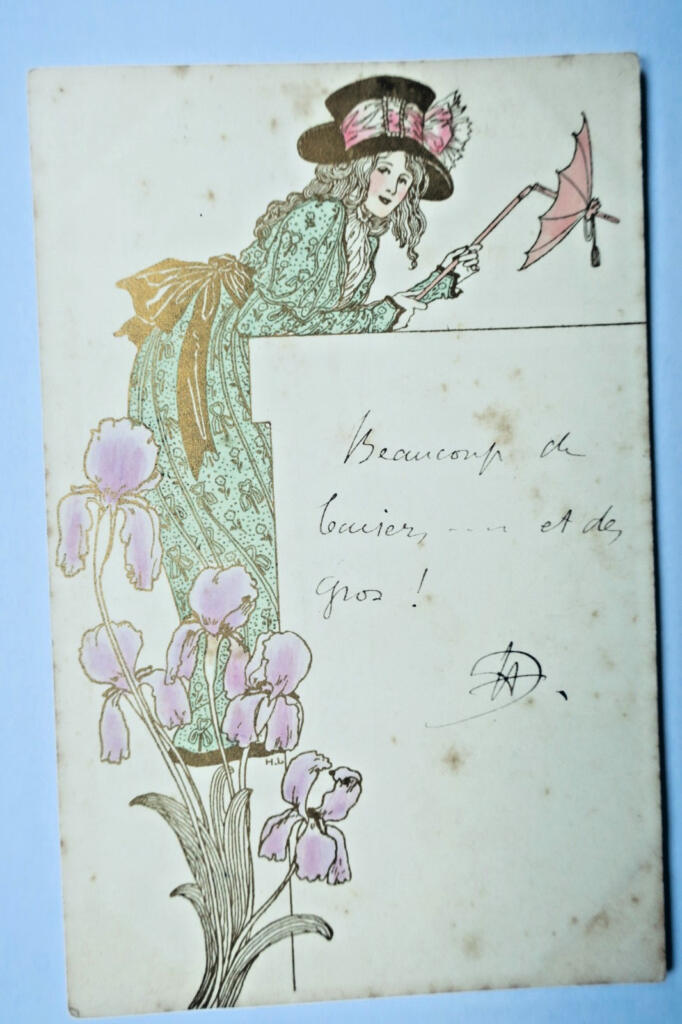 Beaucoup de
baisers ---- et des
gros !
H.L.